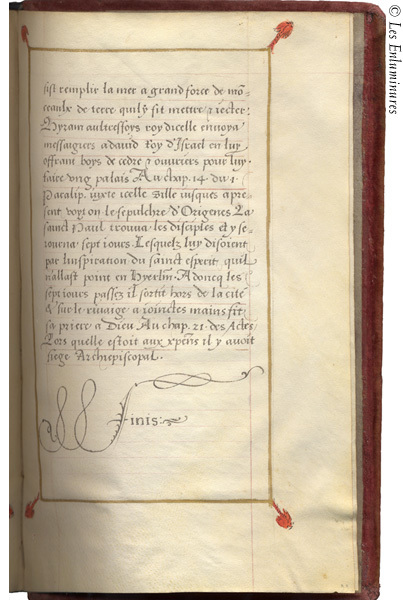 fist remplir la mer a grand force de mõ-
ceaulx de terre quily fit mettre & iecter:
Hyram aultresfoys roy dicelle enuoya
messaigiers a dauid roy d'Israel en luy
offrant boys de cedre & ouuriers pour luy
faire ung palais Au chap. 14 du 1
Paralip. iuxte icelle ville iusques a pre-
sent voyt on le sepulchre d'Origenes La
sainct Paul trouua les disciples et y se-
iourna sept iours. Lesquelz luy disoient
par linspiration du sainct esperit quil
nallast point en Hyerlm. Adoncq les
sept iours passez il sortit hors de la cité
& sur le riuaige a ioinctes mains fit
sa priere a Dieu Au chap. 21. des Actes
Lors quelle estoit aux xpẽns il y auoit
siege Archiepiscopal.
Finis:
© Les Enluminures